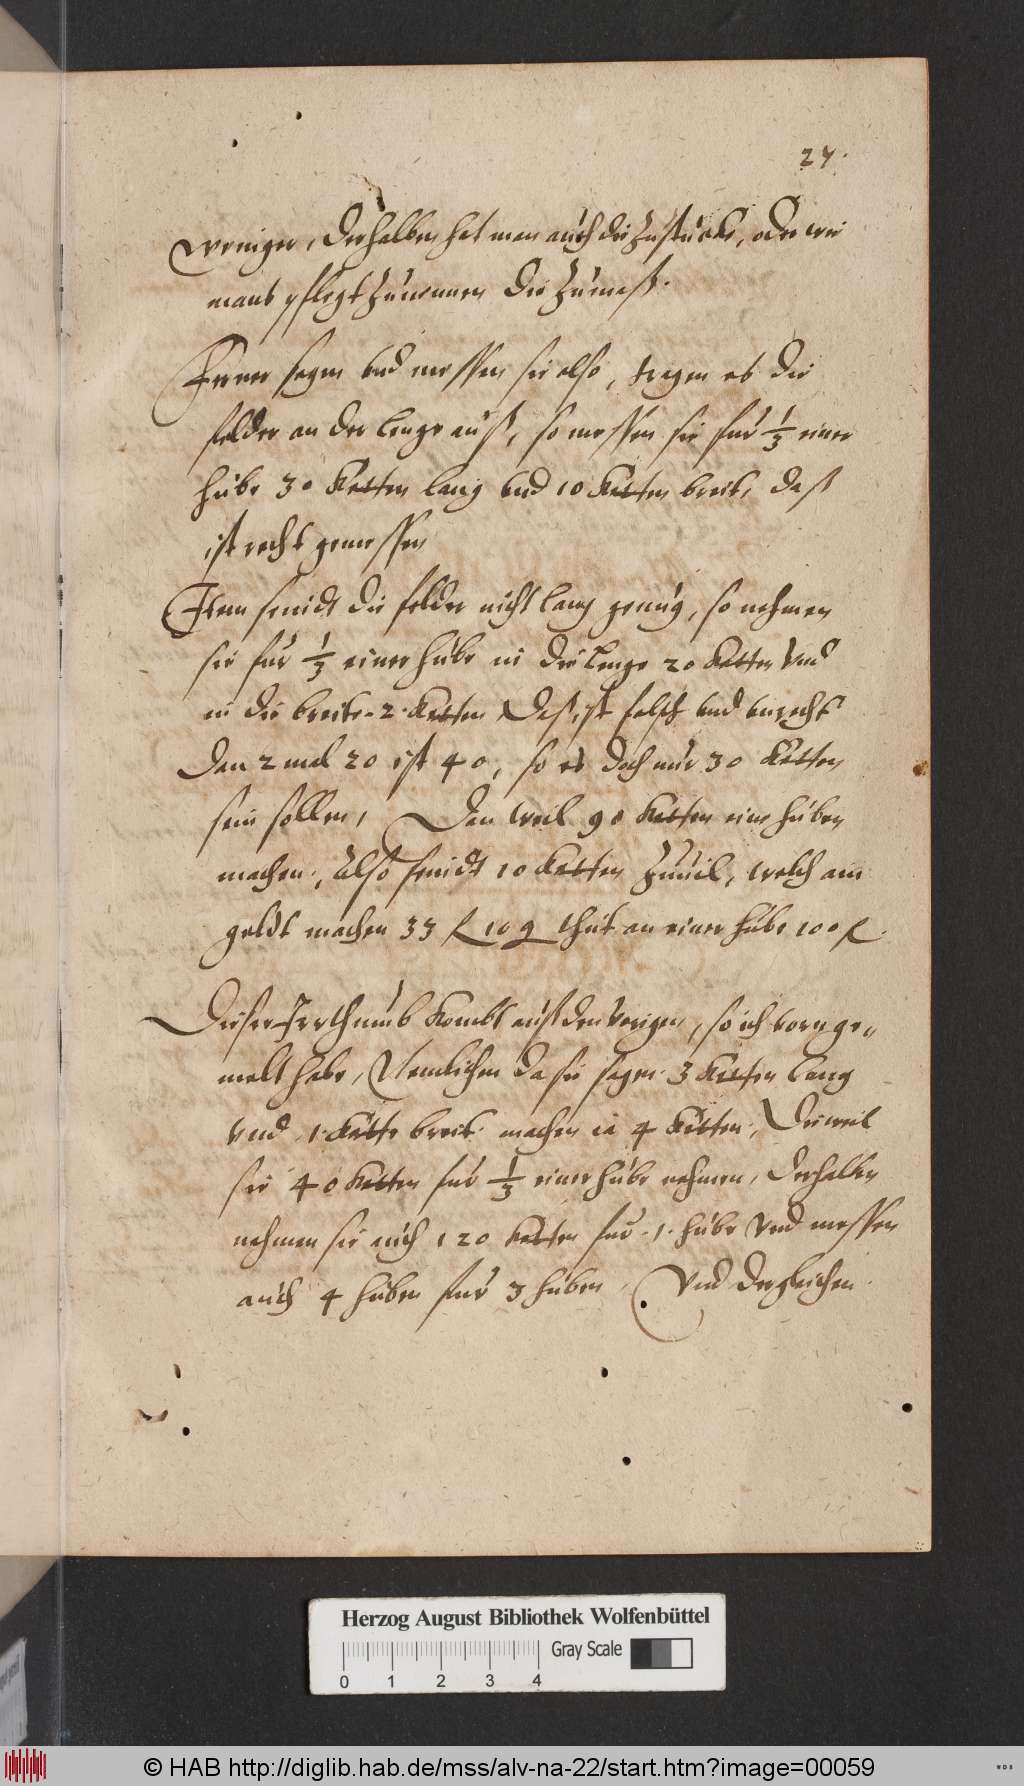 27.
weniger, Derhalben hat man auch die Zustuckh, oder wie
mans pflegt Zunennen die Zumaß.
Ferner sagen vnd messen sie also, tragen es die
felder an der lenge auß, so messen sie fur 1/3 einer
hube 30 Ketten lang vnd 10 Ketten breit, daß
ist recht gemessen
Item seindt die felder nicht lang genug, so nehmen
sie fur 1/3 einer hube in die Lenge 20 Ketten vnd
in die breite 2 Ketten, Das ist falsch vnd vnrecht
Dan 2 mal 20 ist 40, so es doch nur 30 Ketten
sein sollen, Dan weil 90 Ketten eine huben
machen, Also seindt 10 Ketten Zuuil, welch am
geldt machen 33 f 10 g thut an einer hube 100 f.
Dieser Irrthumb Kombt auß den Vorigen, so ich vorn ge„
melt habe, Nemlichen da sie sagen 3 Ketten lang
vnd 1 Kette breit machen ia 4 Ketten, Dieweil
sie 40 Ketten fur 1/3 einer hube nehmen, Derhalben
nehmen sie auch 120 Ketten fur 1. hube Vnd messen
auch 4 huben fur 3 huben, Vnd dergleichen.
Herzog August Bibliothek Wolfenbüttel
Gray Scale
0 1 2 3 4
© HAB http://diglib.hab.de/mss/alv-na-22/start.htm?image=00059